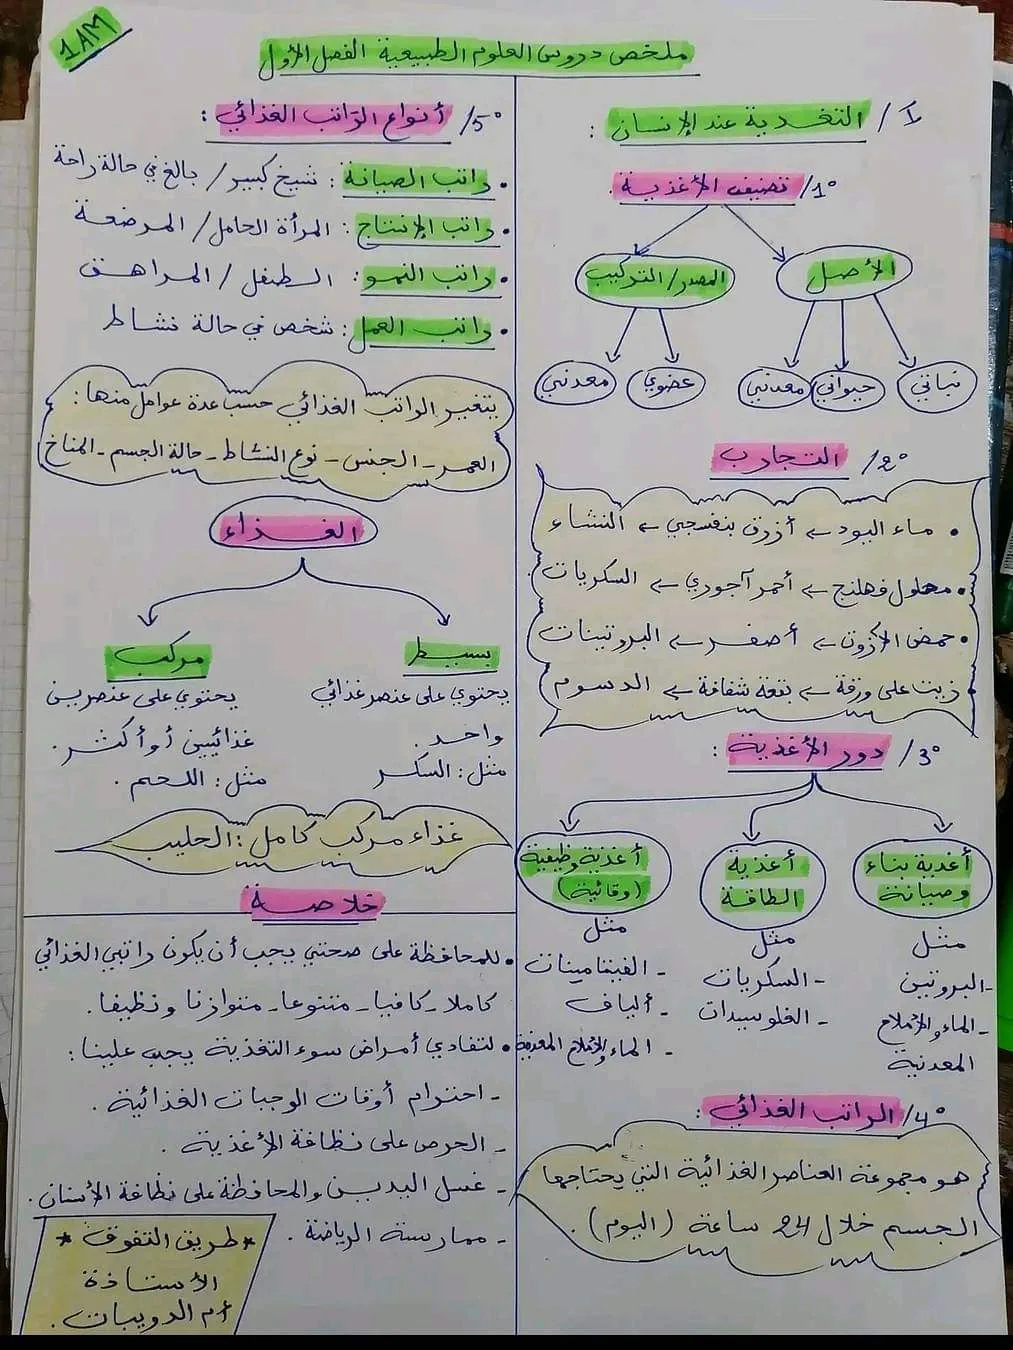 1AM
ملخص دروس العلوم الطبيعية الفصل الأول
I/ التغذية عند الإنسان :
1°/ تصنيف الأغذية .
الأصل
المصدر/التركيب
نباتي
حيواني
معدني
عضوي
معدني
2°/ التجارب
• ماء اليود ← أزرق بنفسجي ← النشاء
• محلول فهلنج ← أحمر آجوري ← السكريات
• حمض الآزوت ← أصفر ← البروتينات
• زيت على ورقة ← بقعة شفافة ← الدسوم
3°/ دور الأغذية :
أغذية بناء
وصيانة
مثل
- البروتين
- الماء والأملاح
المعدنية
أغذية
الطاقة
مثل
- السكريات
- الغلوسيدات
أغذية وظيفية
(وقائية)
مثل
- الفيتامينات
- ألياف
- الماء والأملاح المعدنية
4°/ الراتب الغذائي :
هو مجموعة العناصر الغذائية التي يحتاجها
الجسم خلال 24 ساعة (اليوم) .
5°/ أنواع الراتب الغذائي :
• راتب الصيانة : شيخ كبير / بالغ في حالة راحة
• راتب الإنتاج : المرأة الحامل / المرضعة
• راتب النمو : الطفل / المراهق
• راتب العمل : شخص في حالة نشاط
يتغير الراتب الغذائي حسب عدة عوامل منها :
العمر - الجنس - نوع النشاط - حالة الجسم - المناخ
الغذاء
بسيط
يحتوي على عنصر غذائي
واحد .
مثل : السكر
مركب
يحتوي على عنصرين
غذائيين أو أكثر .
مثل : اللحم .
غذاء مركب كامل : الحليب
خلاصة
• للمحافظة على صحتي يجب أن يكون راتبي الغذائي
كاملا - كافيا - متنوعا - متوازنا ونظيفا .
• لتفادي أمراض سوء التغذية يجب علينا :
- احترام أوقات الوجبات الغذائية .
- الحرص على نظافة الأغذية .
- غسل اليدين والمحافظة على نظافة الأسنان .
- ممارسة الرياضة .
* طريق التفوق *
الأستاذة
أم الدويبات .